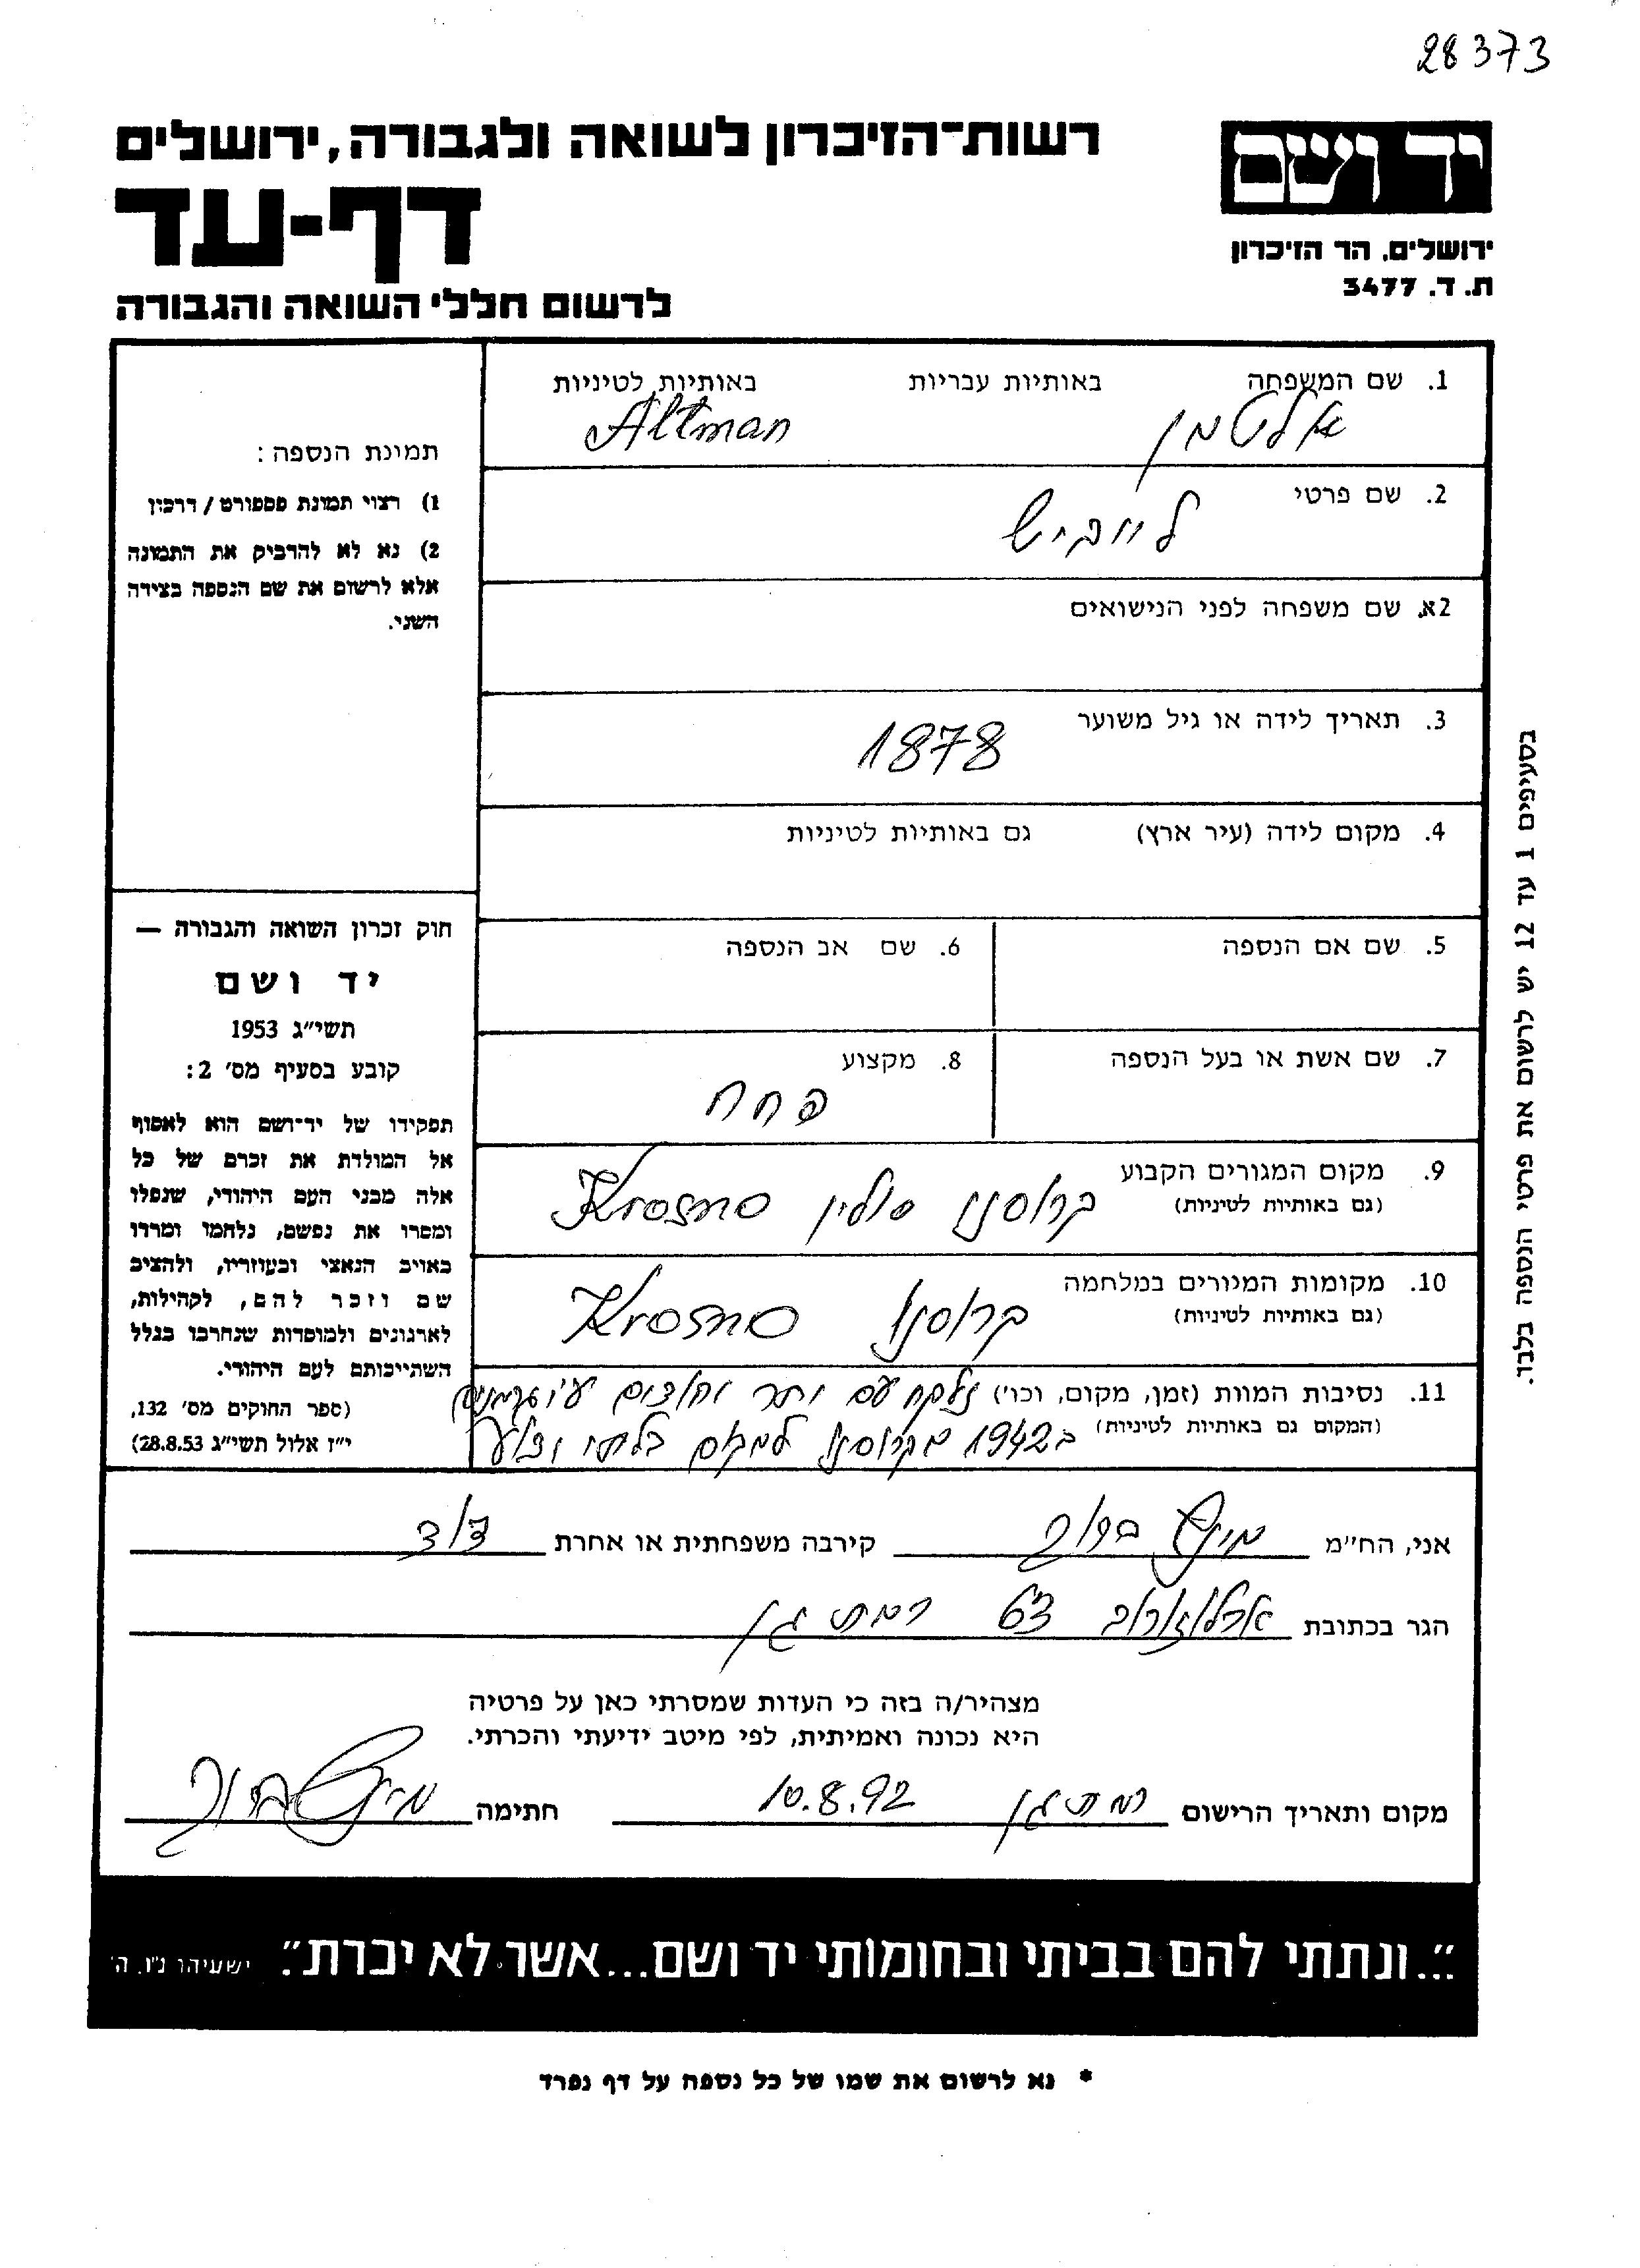 28373
רשות-הזיכרון לשואה ולגבורה, ירושלים
דף-עד
לרשום חללי השואה והגבורה
יד ושם
ירושלים, הר הזיכרון
ת. ד. 3477
1. שם המשפחה באותיות עבריות באותיות לטיניות
אלטמן Altman
2. שם פרטי
לייביש
2א. שם משפחה לפני הנישואים
3. תאריך לידה או גיל משוער
1878
4. מקום לידה (עיר ארץ) גם באותיות לטיניות
5. שם אם הנספה 6. שם אב הנספה
7. שם אשת או בעל הנספה 8. מקצוע
פחח
9. מקום המגורים הקבוע
(גם באותיות לטיניות)
קרוסנו פולין Krosno
10. מקומות המגורים במלחמה
(גם באותיות לטיניות)
קרוסנו Krosno
11. נסיבות המוות (זמן, מקום, וכו') נלקח עם יתר היהודים ע"י גרמנים
(המקום גם באותיות לטיניות) ב 1942 מקרוסנו למקום בלתי ידוע
תמונת הנספה:
1) רצוי תמונת פספורט / דרכון
2) נא לא להדביק את התמונה
אלא לרשום את שם הנספה בצידה
השני.
חוק זכרון השואה והגבורה —
יד ושם
תשי"ג 1953
קובע בסעיף מס' 2:
תפקידו של יד-ושם הוא לאסוף
אל המולדת את זכרם של כל
אלה מבני העם היהודי, שנפלו
ומסרו את נפשם, נלחמו ומרדו
באויב הנאצי ובעוזריו, ולהציב
שם וזכר להם, לקהילות,
לארגונים ולמוסדות שנחרבו בגלל
השתייכותם לעם היהודי.
(ספר החוקים מס' 132,
י"ז אלול תשי"ג 28.8.53)
בסעיפים 1 עד 12 יש לרשום את פרטי הנספה בלבד.
אני, הח"מ ברוך קירבה משפחתית או אחרת
הגר בכתובת ארלוזורוב רמת גן
מצהיר/ה בזה כי העדות שמסרתי כאן על פרטיה
היא נכונה ואמיתית, לפי מיטב ידיעתי והכרתי.
מקום ותאריך הרישום רמת גן 10.8.92 חתימה ברוך
"...ונתתי להם בביתי ובחומותי יד ושם...אשר לא יכרת". ישעיהו נ"ו, ה'
* נא לרשום את שמו של כל נספה על דף נפרד